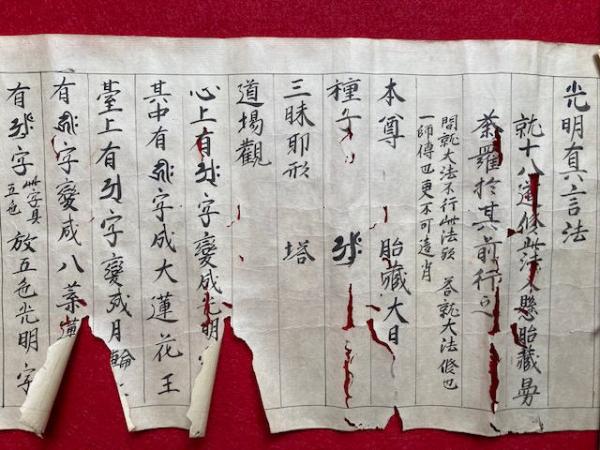 光明真言法
就十八道修此法又懸胎藏曼
荼羅於其前行之
問就大法不行此法歟 答就大法修也
一師傳也更不可
本尊 胎藏大日
種子
三昧耶形 塔
道場觀
心上有字變成光明
其中有字成大蓮花王
臺上有字變成月輪
有字變成八葉
有字此字具五色放五色光明字